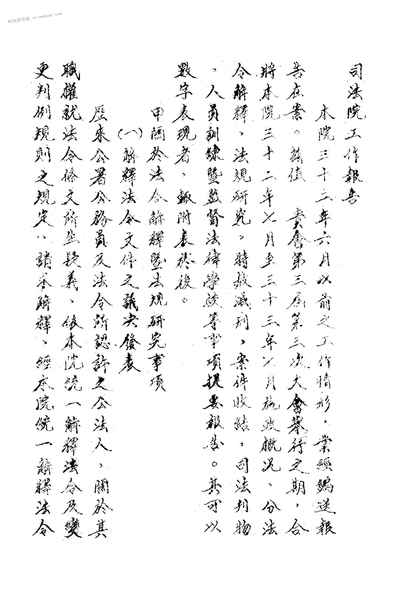 司法院工作報告
本院三十三年六月以前之工作情形，業經編送報
告在案。茲值　貴會第三屆第三次大會舉行之期，合
將本院三十二年七月至三十三年七月施政概况，分法
令解釋、法規研究、特赦減刑、案件收結、司法刊物
、人員訓練暨監督法律學校等事項提要報告。其可以
數字表現者，輙附表於後。
甲關於法令解釋暨法規研究事項
(一)解釋法令文件之議決發表
歷來公署公務員及法令所認許之公法人，關於其
職權就法令條文所生疑義，依本院統一解釋法令及變
更判例規則之規定，請求解釋，經本院統一解釋法令